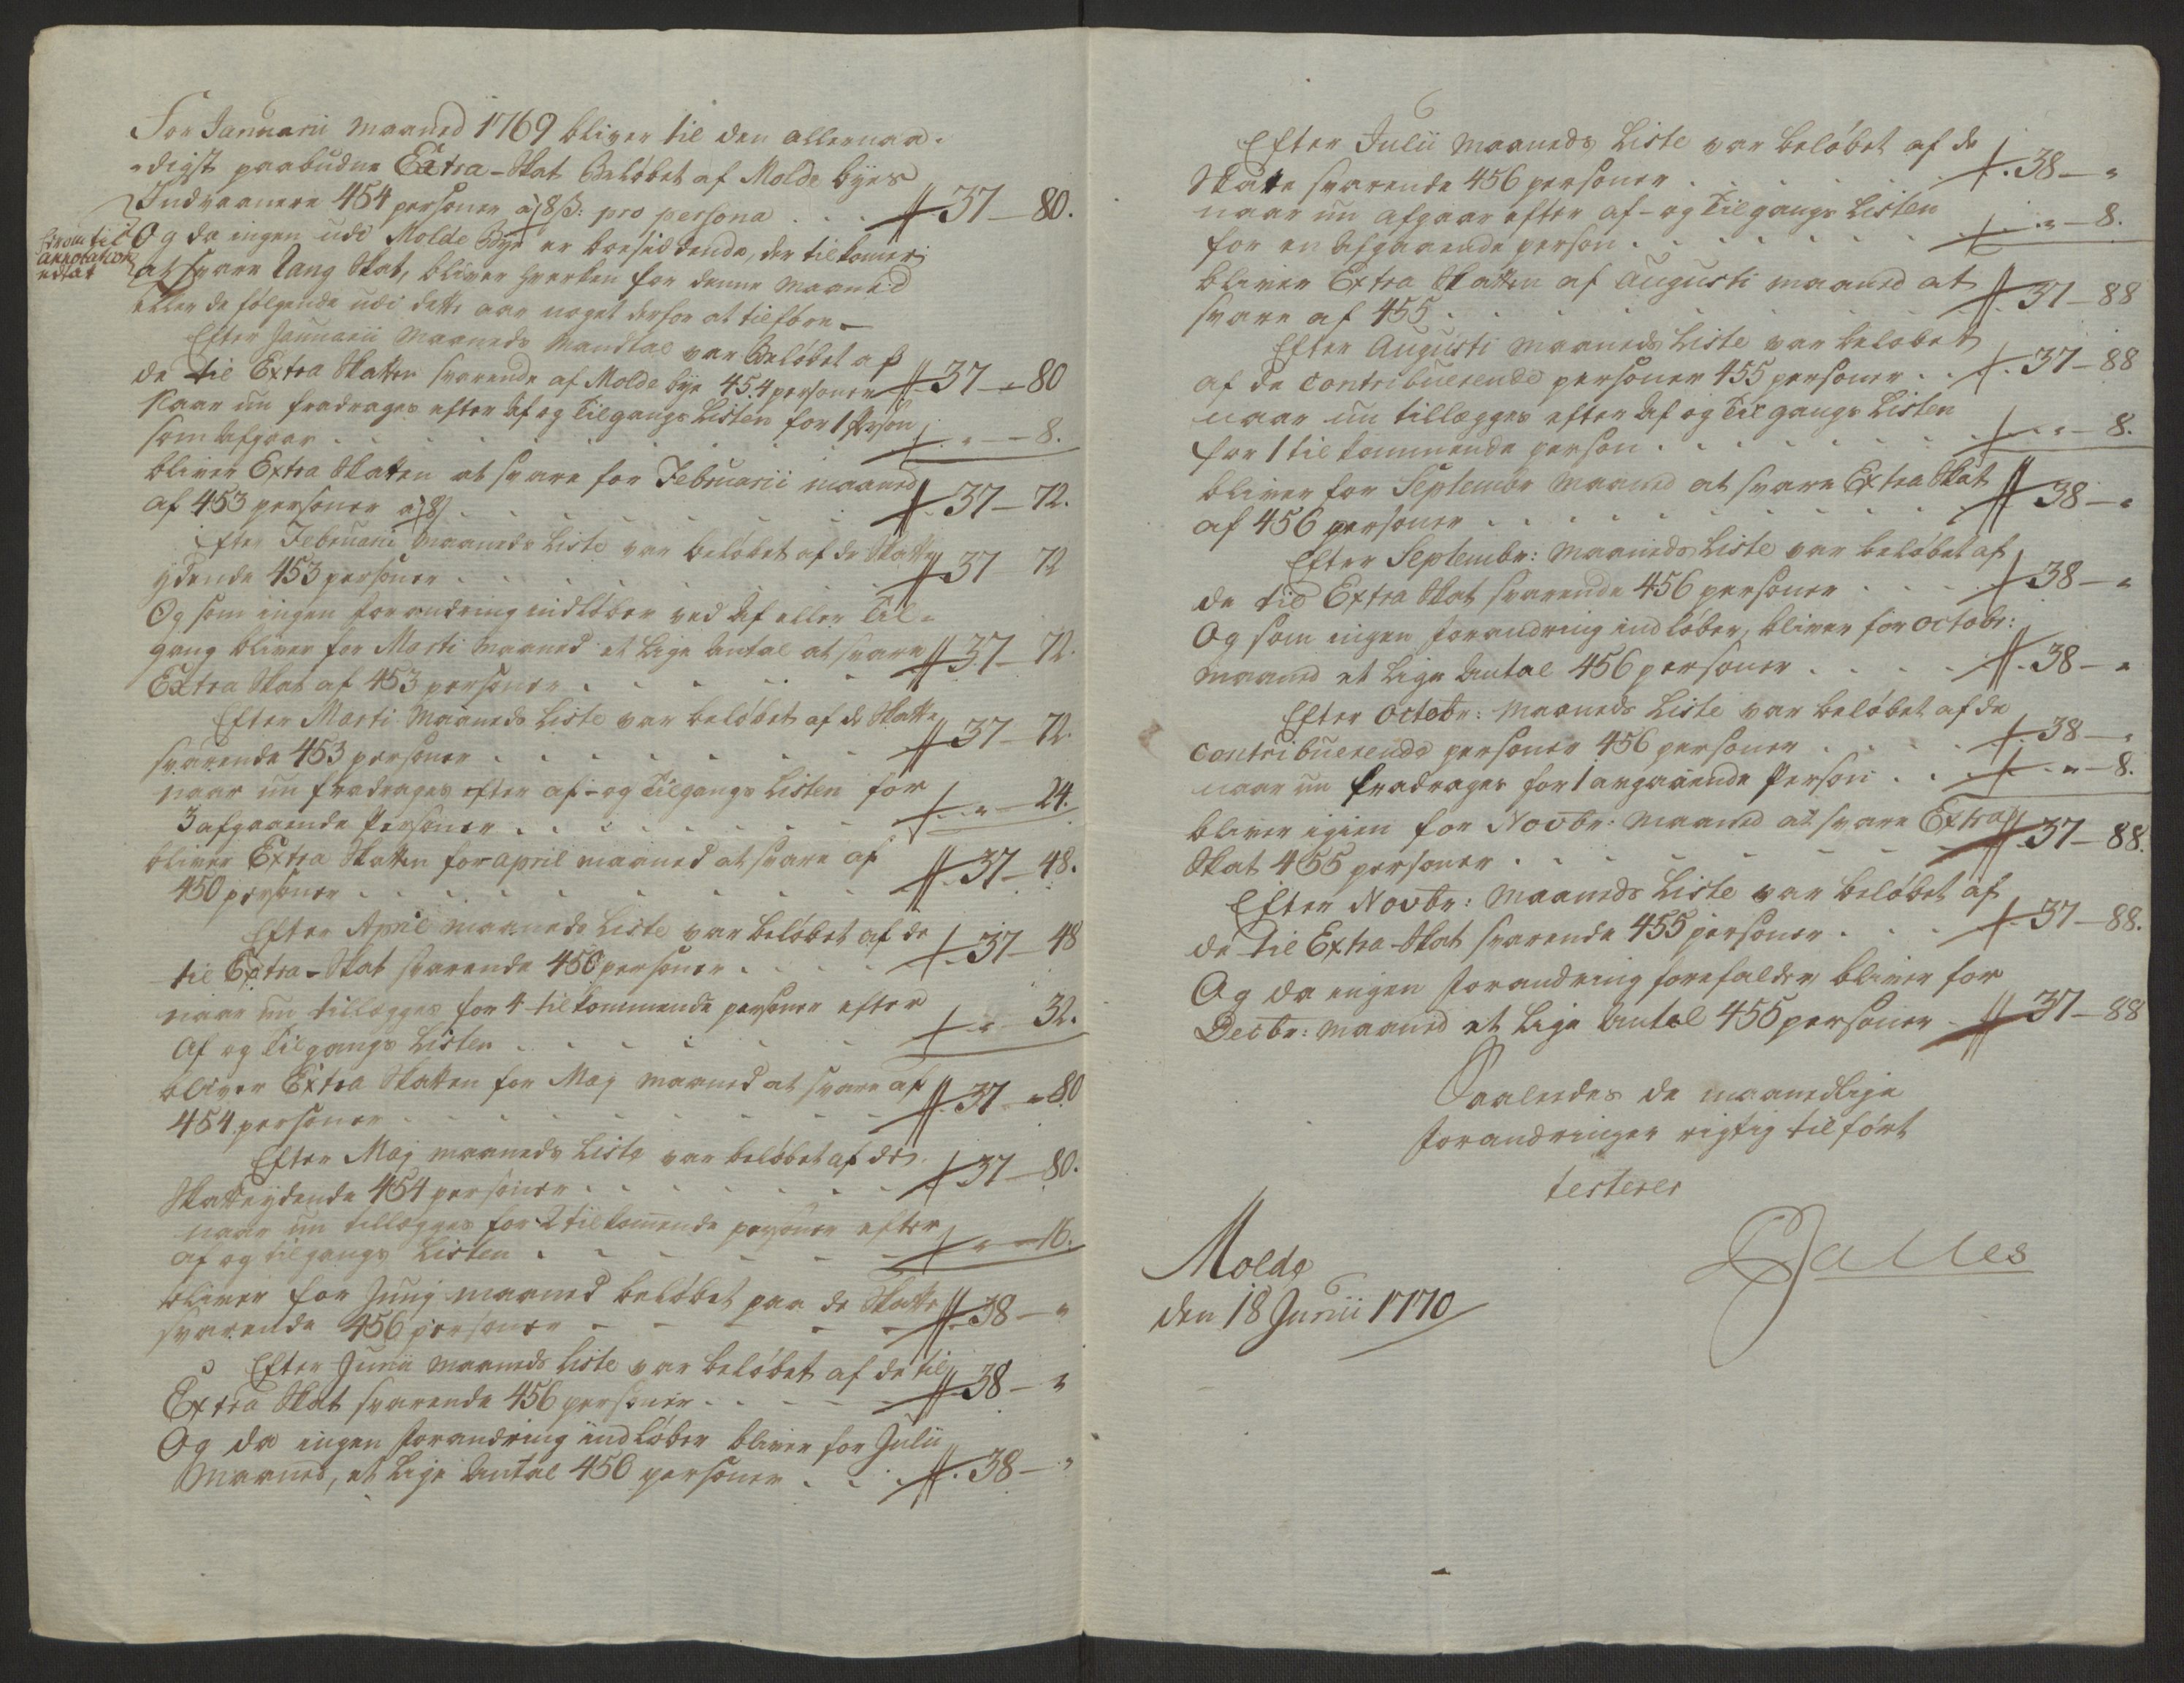 For Januarii maaned 1769 bliver til den allernaa-
-digst paabudne Extra-Skat Beløbet af Molde byes
Indvaanere 454 personer à 8 ß: pro persona . . . 37 - 80.
Og da ingen udi Molde Bye er boesiddende, der tilkomer
at svare Rang Skat, bliver hverken for denne Maaned
eller de følgende udi dette aar noget derfor at tilføre -
Efter Januarii Maaneds Mandtal var Beløbet af
de til Extra Skatten svarende af Molde bye 454 personer 37 - 80
Naar nu fradrages efter Af og Tilgangs Listen for 1 Person
som Afgaar . . . " - 8.
bliver Extra Skatten at svare for Februarii maaned
af 453 personer à 8 ß . . . 37 - 72.
Efter Februarii Maaneds Liste var beløbet af de Skatte
ydende 453 personer . . . 37 72
Og som ingen forandring indløber ved Af eller Til-
gang bliver for Marti Maaned et Lige Antal at svare
Extra Skat af 453 personer . . . 37 - 72.
Efter Marti Maaneds Liste var beløbet af de Skatte
svarende 453 personer . . . 37 - 72.
naar nu fradrages efter af- og Tilgangs Listen for
3 afgaaende Personer . . . " - 24.
bliver Extra Skatten for april maaned at svare af
450 personer . . . 37 - 48.
Efter April maaneds Liste var beløbet af de
til Extra-Skat svarende 450 personer . . . 37 - 48
naar nu tillegges for 4 tilkommende personer efter
Af og Tilgangs Listen . . . " - 32.
bliver Extra Skatten for Maj maaned at svare af
454 personer . . . 37 - 80
Efter Maj maaneds Liste var beløbet af de
Skatteydende 454 personer . . . 37 - 80.
naar nu tillegges for 2 tilkomende personer efter
af og tilgangs Listen . . . " - 16.
bliver for Junij maaned beløbet paa de Skatte
svarende 456 personer . . . 38 - "
Efter Junii maaneds Liste var beløbet af de til
Extra Skat svarende 456 personer . . . 38 - "
Og da ingen forandring indløber bliver for Julii
Maaned, et Lige Antal 456 personer . . . 38 - "
Efter Julii Maaneds Liste var beløbet af de
Skatte svarende 456 personer . . . 38 - "
naar nu afgaar efter af- og Tilgangs Listen
for en Afgaaende person . . . " - 8.
bliver Extra Skatten af Augusti maaned at
svare af 455 . . . 37 - 88
Efter Augusti maaneds Liste var beløbet
af de Contribuerende personer 455 personer . . 37 - 88
naar nu tillægges efter Af og Tilgangs Listen
for 1 tilkommende person . . . " - 8.
bliver for Septembr Maaned at svare Extra Skat
af 456 personer . . . 38 - "
Efter Septembr: Maaneds Liste var beløbet af
de til Extra Skat svarende 456 personer . . . 38 - "
Og som ingen forandring indløber, bliver for Octobr:
maaned et Lige Antal 456 personer . . . 38 - "
Efter Octobr: Maaneds Liste var beløbet af de
Contribuerende personer 456 personer . . . 38 - "
naar nu fradrages for 1 avgaaende Person . . . " - 8.
bliver igien for Novbr: Maaned at svare Extra
Skat 455 personer . . . 37 - 88.
Efter Novbr: Maaneds Liste var beløbet af
de til Extra-Skat svarende 455 personer . . . 37 - 88.
Og da ingen forandring forefalder bliver for
Decbr: Maaned et Lige Antal 455 personer - 37 - 88
Saaledes de maanedlige
forandringer rigtig tilført
testerer
Molde
den 18 Junii 1770